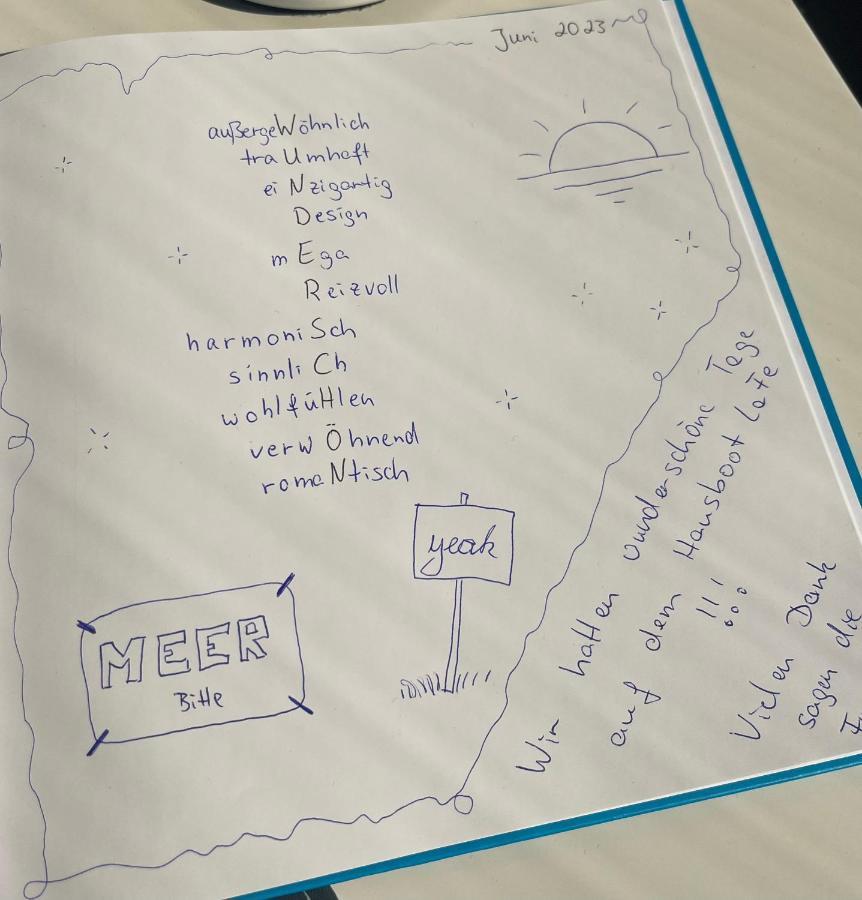 Juni 2023
außergeWöhnlich
traUmhaft
eiNzigartig
Design
mEga
Reizvoll
harmoniSch
sinnliCh
wohlfüHlen
verwÖhnend
romaNtisch
yeah
MEER
Bitte
Wir hatten wunderschöne Tage
auf dem Hausboot Lote
!!!
Vielen Dank
sagen die